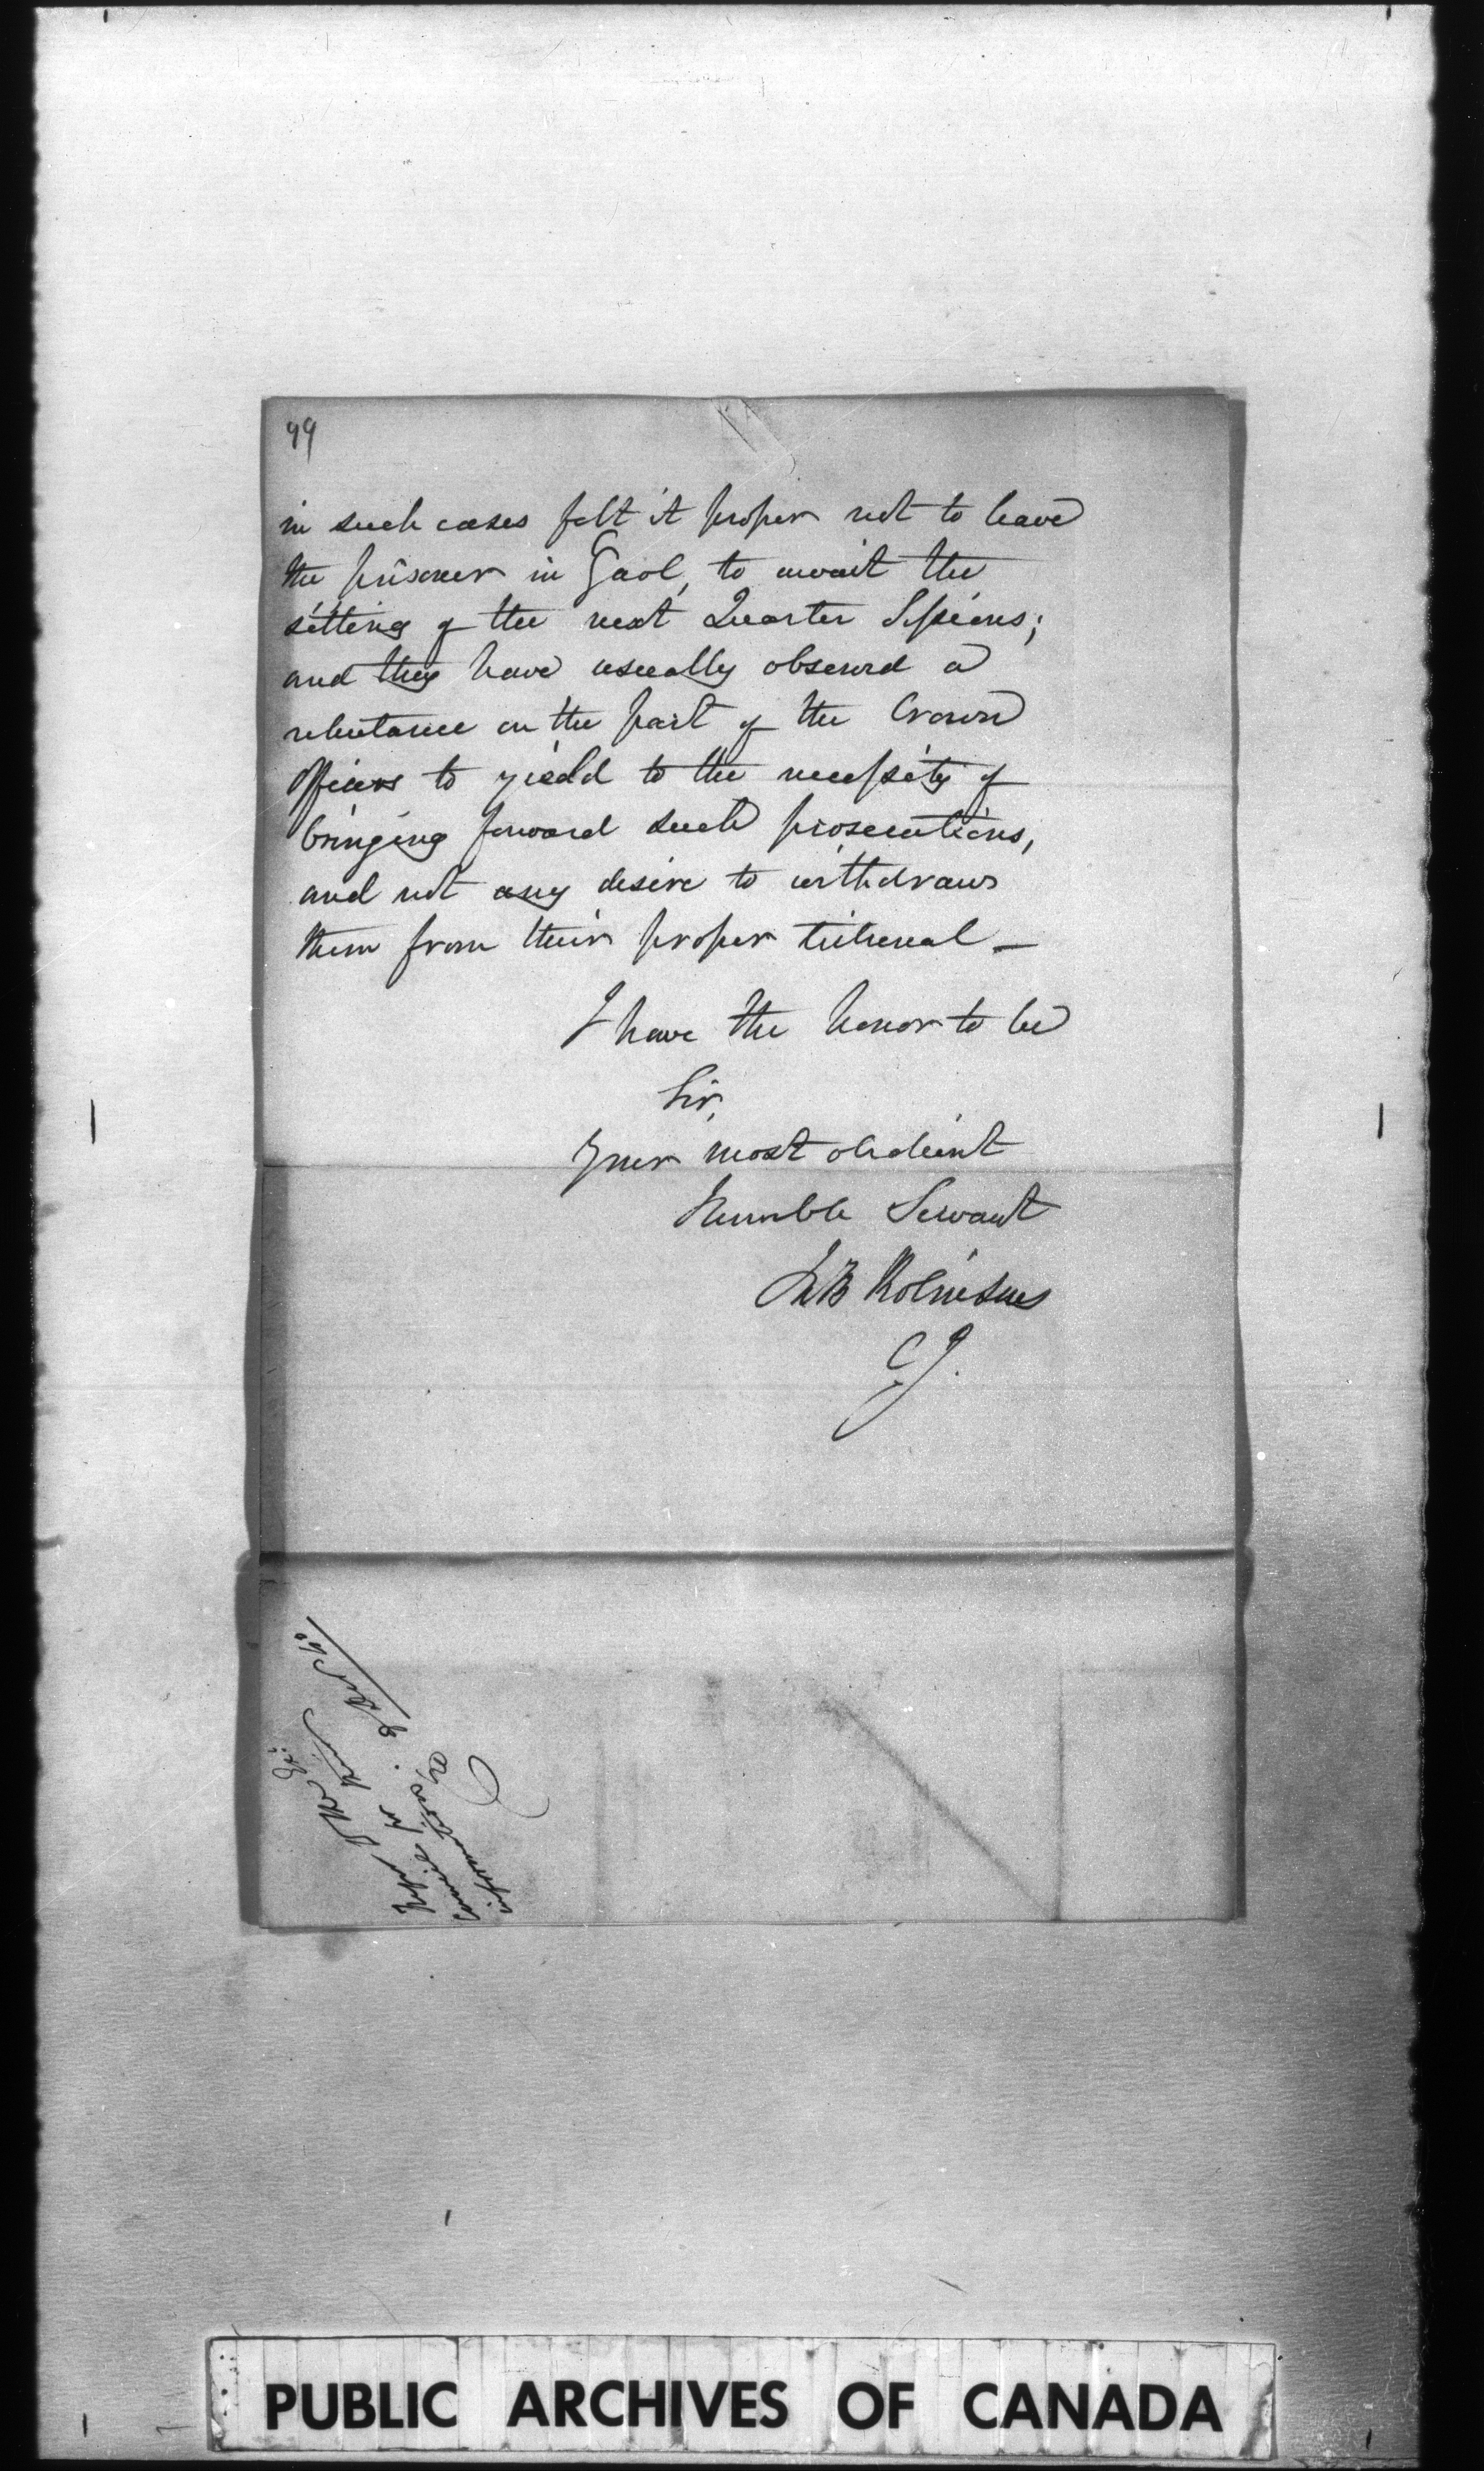 99
in such cases felt it proper not to leave
the prisoner in Gaol, to await the
sitting of the next Quarter Sessions;
and they have usually observed a
reluctance on the part of the Crown
Officers to yield to the necessity of
bringing forward such prosecutions,
and not any desire to withdraw
them from their proper tribunal —
I have the honor to be
Sir,
Your most obedient
Humble Servant
Jn B Robinson
CJ.
Council for
information
PUBLIC ARCHIVES OF CANADA